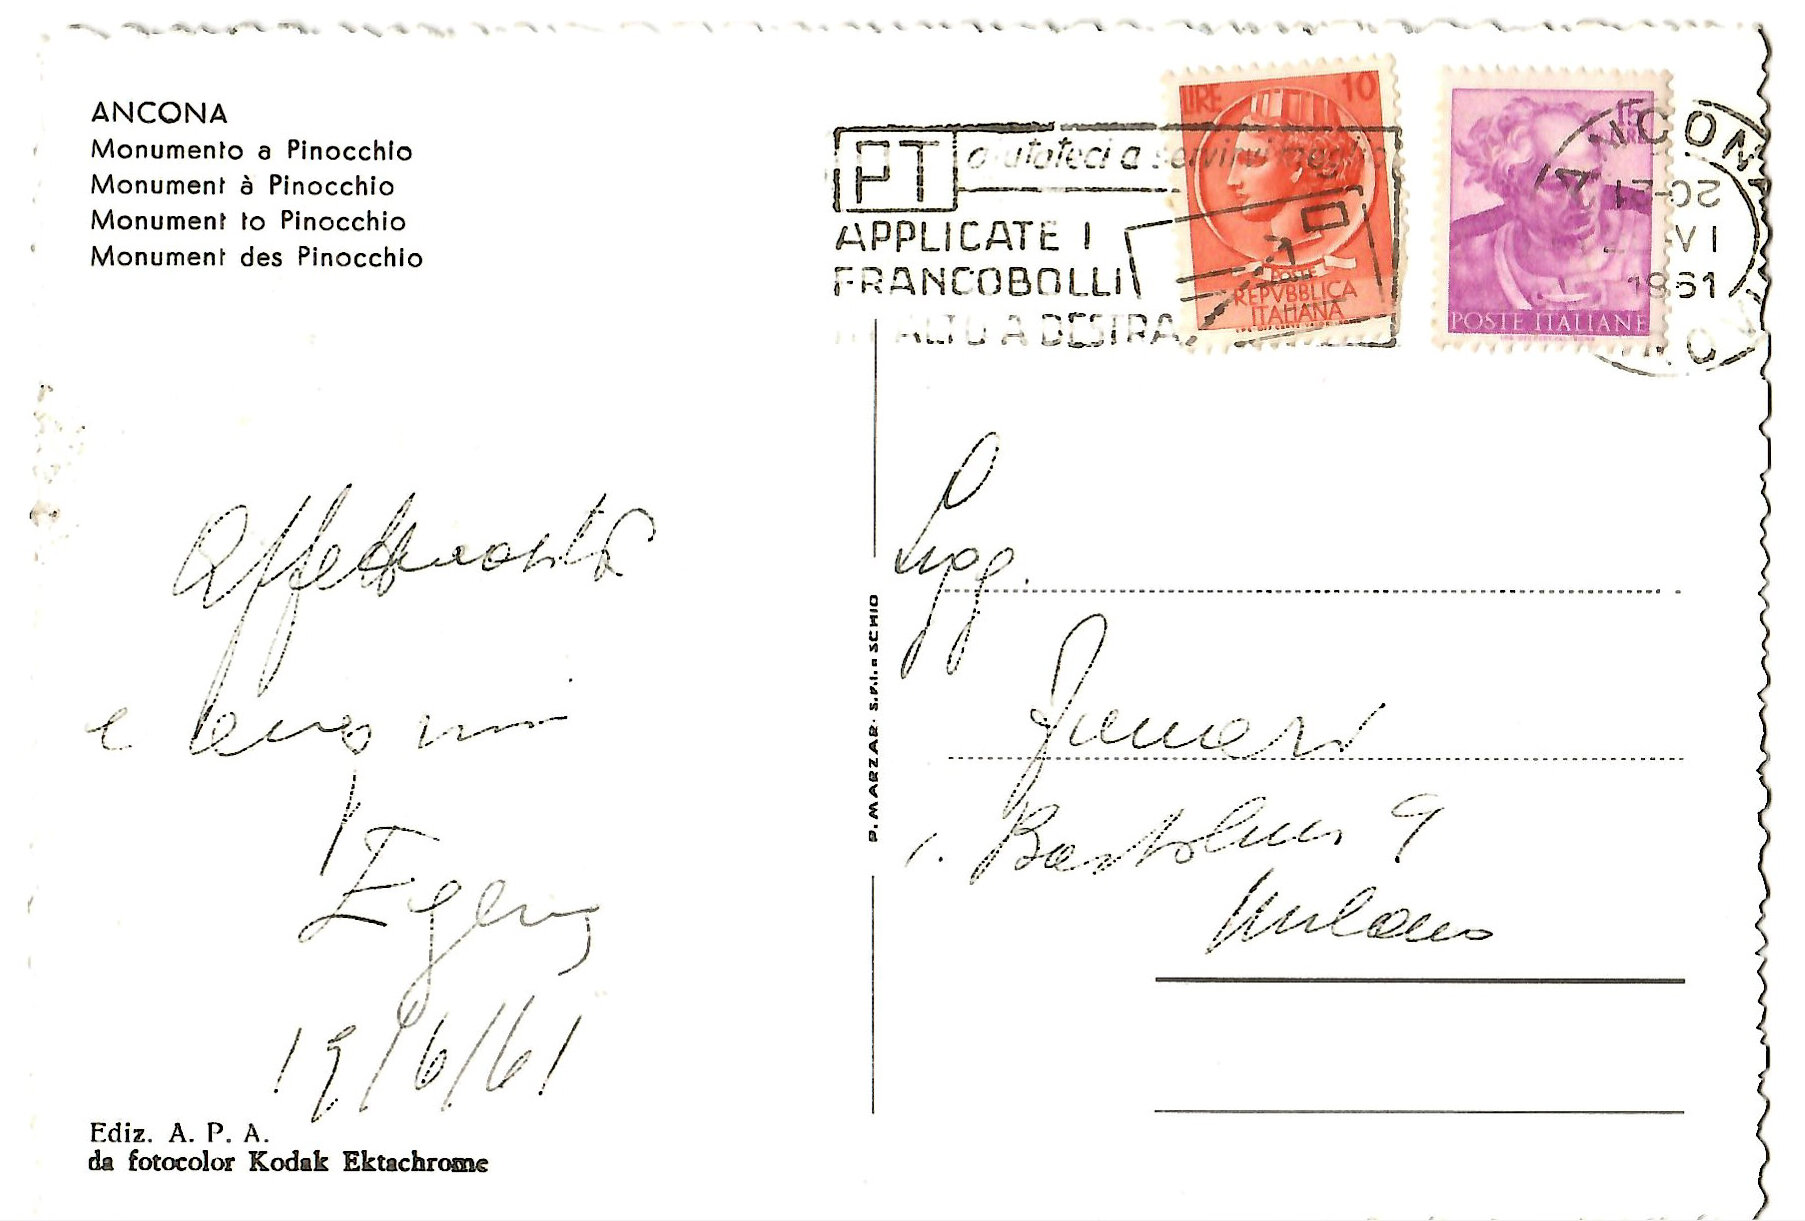 ANCONA
Monumento a Pinocchio
Monument à Pinocchio
Monument to Pinocchio
Monument des Pinocchio
PT aiutateci a servirvi meglio
APPLICATE I
FRANCOBOLLI
IN ALTO A DESTRA
LIRE 10
POSTE
REPVBBLICA
ITALIANA
15
POSTE ITALIANE
ANCONA
20-21
VI
1961
Affettuosità
e
19/6/61
Bartolini 9
Milano
P. MARZARI S.P.I. - SCHIO
Ediz. A. P. A.
da fotocolor Kodak Ektachrome